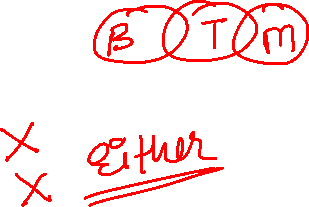 B T M
X
either
X